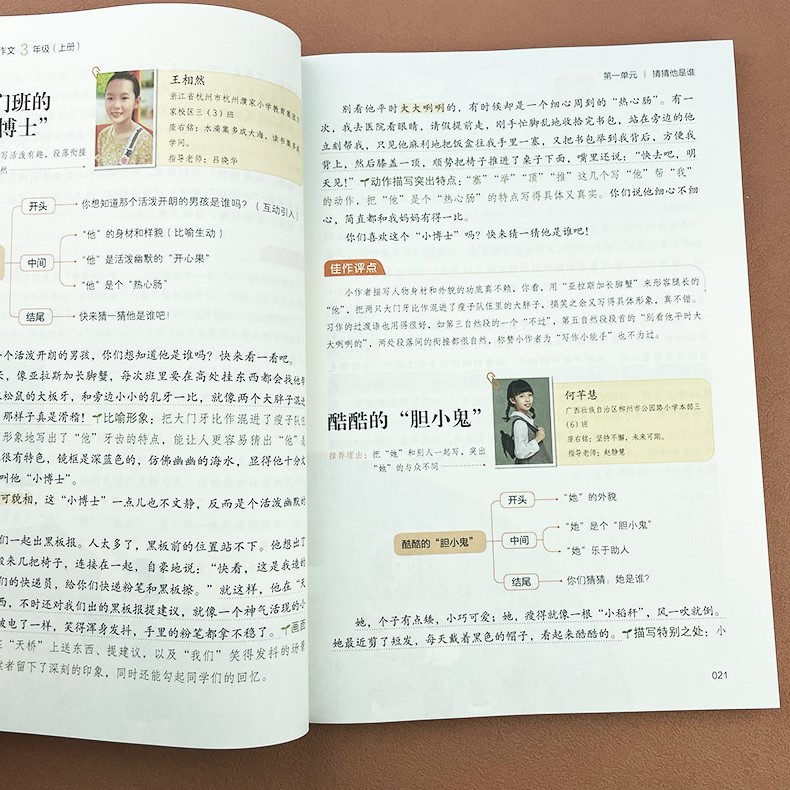 作文3年级（上册）
门班的
博士”
写活泼有趣，段落衔接
然
王相然
浙江省杭州市杭州濮家小学教育集团
家校区三（3）班
座右铭：水滴集多成大海，读书集多
学问。
指导老师：吕晓华
开头
你想知道那个活泼开朗的男孩是谁吗？（互动引入）
“他”的身材和样貌（比喻生动）
中间
“他”是活泼幽默的“开心果”
“他”是个“热心肠”
结尾
快来猜一猜他是谁吧！
个活泼开朗的男孩，你们想知道他是谁吗？快来看一看吧。
长，像亚拉斯加长脚蟹，每次班里要在高处挂东西都会找他帮
松鼠的大板牙，和旁边小小的乳牙一比，就像两个大胖子混进
那样子真是滑稽！比喻形象：把大门牙比作混进了瘦子队伍
形象地写出了“他”牙齿的特点，能让人更容易猜出“他”是
很有特色，镜框是深蓝色的，仿佛幽幽的海水，显得他十分文
叫他“小博士”。
可貌相，这“小博士”一点儿也不文静，反而是个活泼幽默的
们一起出黑板报。人太多了，黑板前的位置站不下。他想出了
搬来几把椅子，连接在一起，自豪地说：“快看，这是我造的
们的快递员，给你们快递粉笔和黑板擦。”就这样，他在“天
西，不时还对我们出的黑板报提建议，就像一个神气活现的小
被电了一样，笑得浑身发抖，手里的粉笔都拿不稳了。画面
在“天桥”上送东西、提建议，以及“我们”笑得发抖的场景
读者留下了深刻的印象，同时还能勾起同学们的回忆。
第一单元｜猜猜他是谁
别看他平时大大咧咧的，有时候却是一个细心周到的“热心肠”。有一
次，我去医院看眼睛，请假提前走，刚手忙脚乱地收拾完书包，站在旁边的他
立刻帮我，只见他麻利地把饭盒往我手里一塞，又把书包举到我背后，方便我
背上，然后膝盖一顶，顺势把椅子推进了桌子下面，嘴里还说：“快去吧，明
天见！”动作描写突出特点：“塞”“举”“顶”“推”这几个写“他”帮“我”
的动作，把“他”是个“热心肠”的特点写得具体又真实。你们说他细心不细
心，简直都和我妈妈有得一比。
你们喜欢这个“小博士”吗？快来猜一猜他是谁吧！
佳作评点
小作者描写人物身材和外貌的功底真不赖，你看，用“亚拉斯加长脚蟹”来形容腿长的
“他”，把两只大门牙比作混进了瘦子队伍里的大胖子，搞笑之余又写得具体形象，真不错。
习作的过渡语也用得很好，如第三自然段的一个“不过”，第五自然段段首的“别看他平时大
大咧咧的”，两处段落间的衔接都很自然，称赞小作者为“写作小能手”也不为过。
酷酷的“胆小鬼”
推荐理由：把“她”和别人一起写，突出
“她”的与众不同
何芊慧
广西壮族自治区柳州市公园路小学本部三
（6）班
座右铭：坚持不懈，未来可期。
指导老师：赵静慧
开头
“她”的外貌
“她”是个“胆小鬼”
酷酷的“胆小鬼”
中间
“她”乐于助人
结尾
你们猜猜：她是谁？
她，个子有点矮，小巧可爱；她，瘦得就像一根“小稻秆”，风一吹就倒。
她最近剪了短发，每天戴着黑色的帽子，看起来酷酷的。描写特别之处：小
021